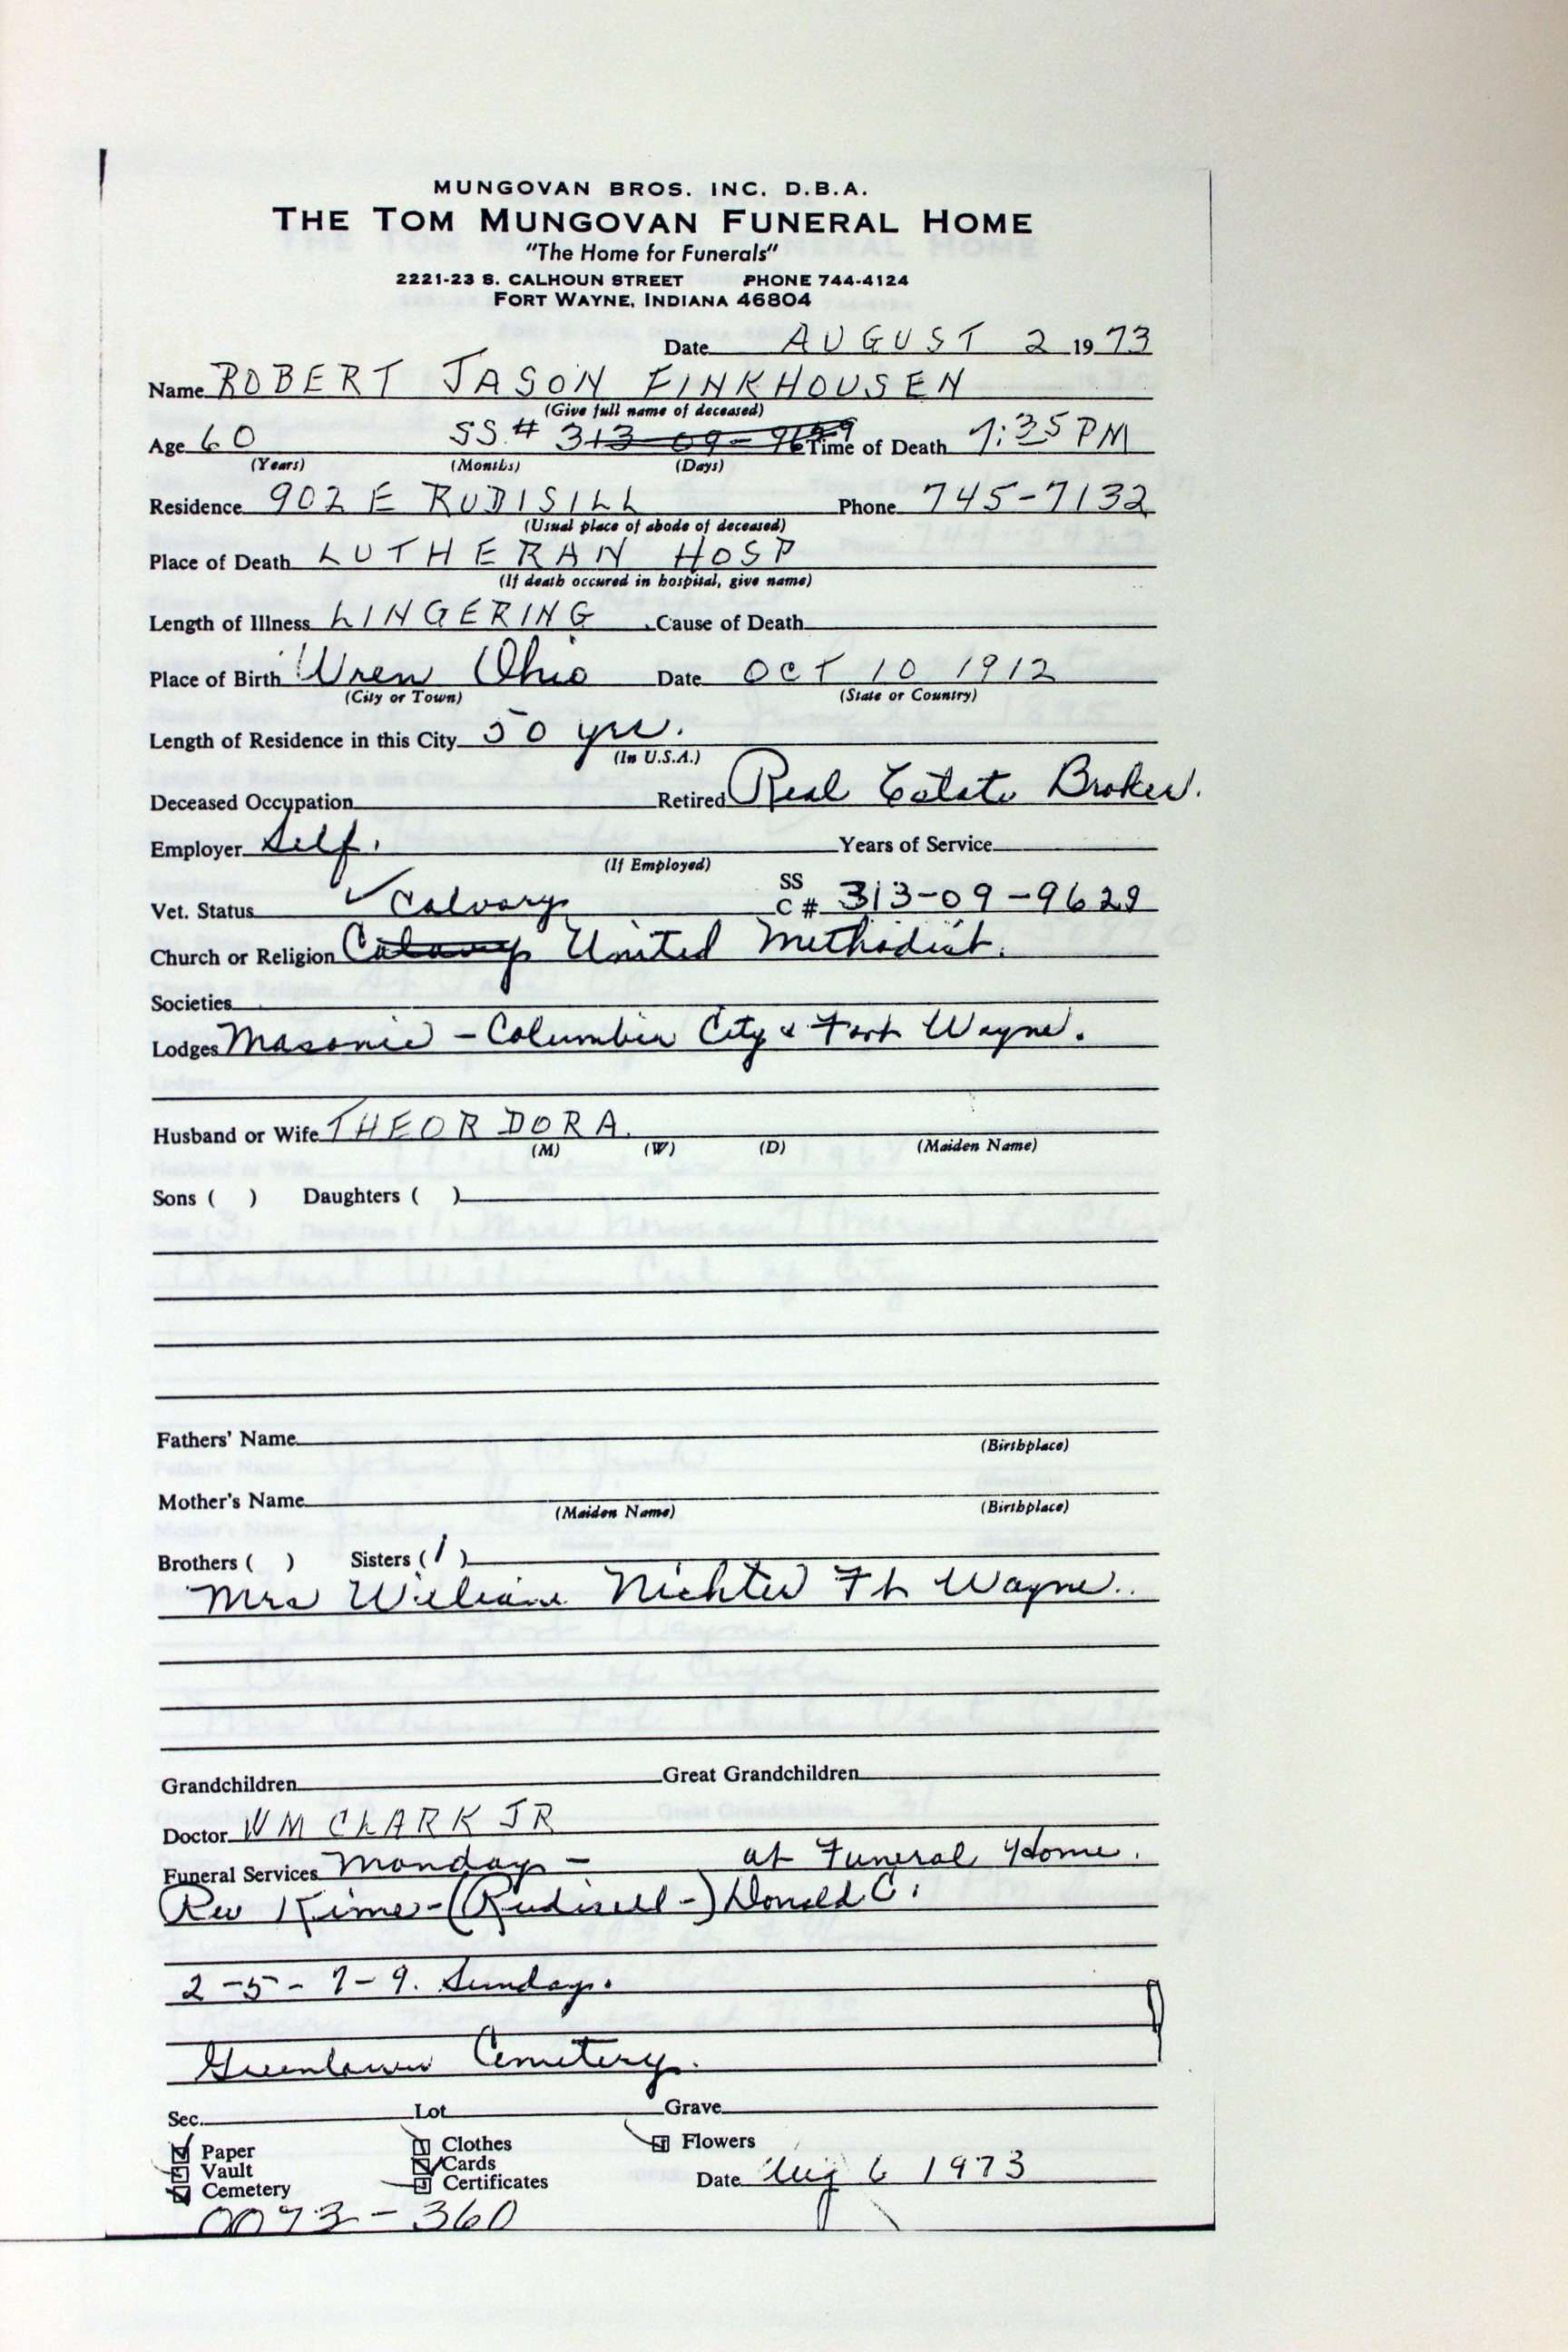 MUNGOVAN BROS. INC. D.B.A.
THE TOM MUNGOVAN FUNERAL HOME
"The Home for Funerals"
2221-23 S. CALHOUN STREET PHONE 744-4124
FORT WAYNE, INDIANA 46804
Date AUGUST 2 1973
Name ROBERT JASON FINKHOUSEN
(Give full name of deceased)
Age 60 SS # 313-09- Time of Death 7:35 PM
(Years) (Months) (Days)
Residence 902 E RUDISILL Phone 745-7132
(Usual place of abode of deceased)
Place of Death LUTHERAN HOSP
(If death occured in hospital, give name)
Length of Illness LINGERING Cause of Death
Place of Birth Wren Ohio Date OCT 10 1912
(City or Town) (State or Country)
Length of Residence in this City 50 yrs.
(In U.S.A.)
Deceased Occupation Retired Real Estate Broker.
Employer Self.
Years of Service
(If Employed)
Vet. Status Calvary SS C # 313-09-9629
Church or Religion Calvary United Methodist.
Societies
Lodges Masonic - Columbia City & Fort Wayne.
Husband or Wife THEORDORA.
(M) (W) (D) (Maiden Name)
Sons ( ) Daughters ( )
Fathers' Name
(Birthplace)
Mother's Name
(Maiden Name) (Birthplace)
Brothers ( ) Sisters (1)
Mrs William Nichter Ft Wayne..
Grandchildren Great Grandchildren
Doctor WM CLARK JR
Funeral Services Monday - at Funeral Home.
Rev Kime - (Rudisell -) Donald C.
2-5-7-9. Sunday.
Greenlawn Cemetery.
Sec. Lot Grave
Paper Clothes Flowers
Vault Cards
Cemetery Certificates Date Aug 6 1973
0073-360